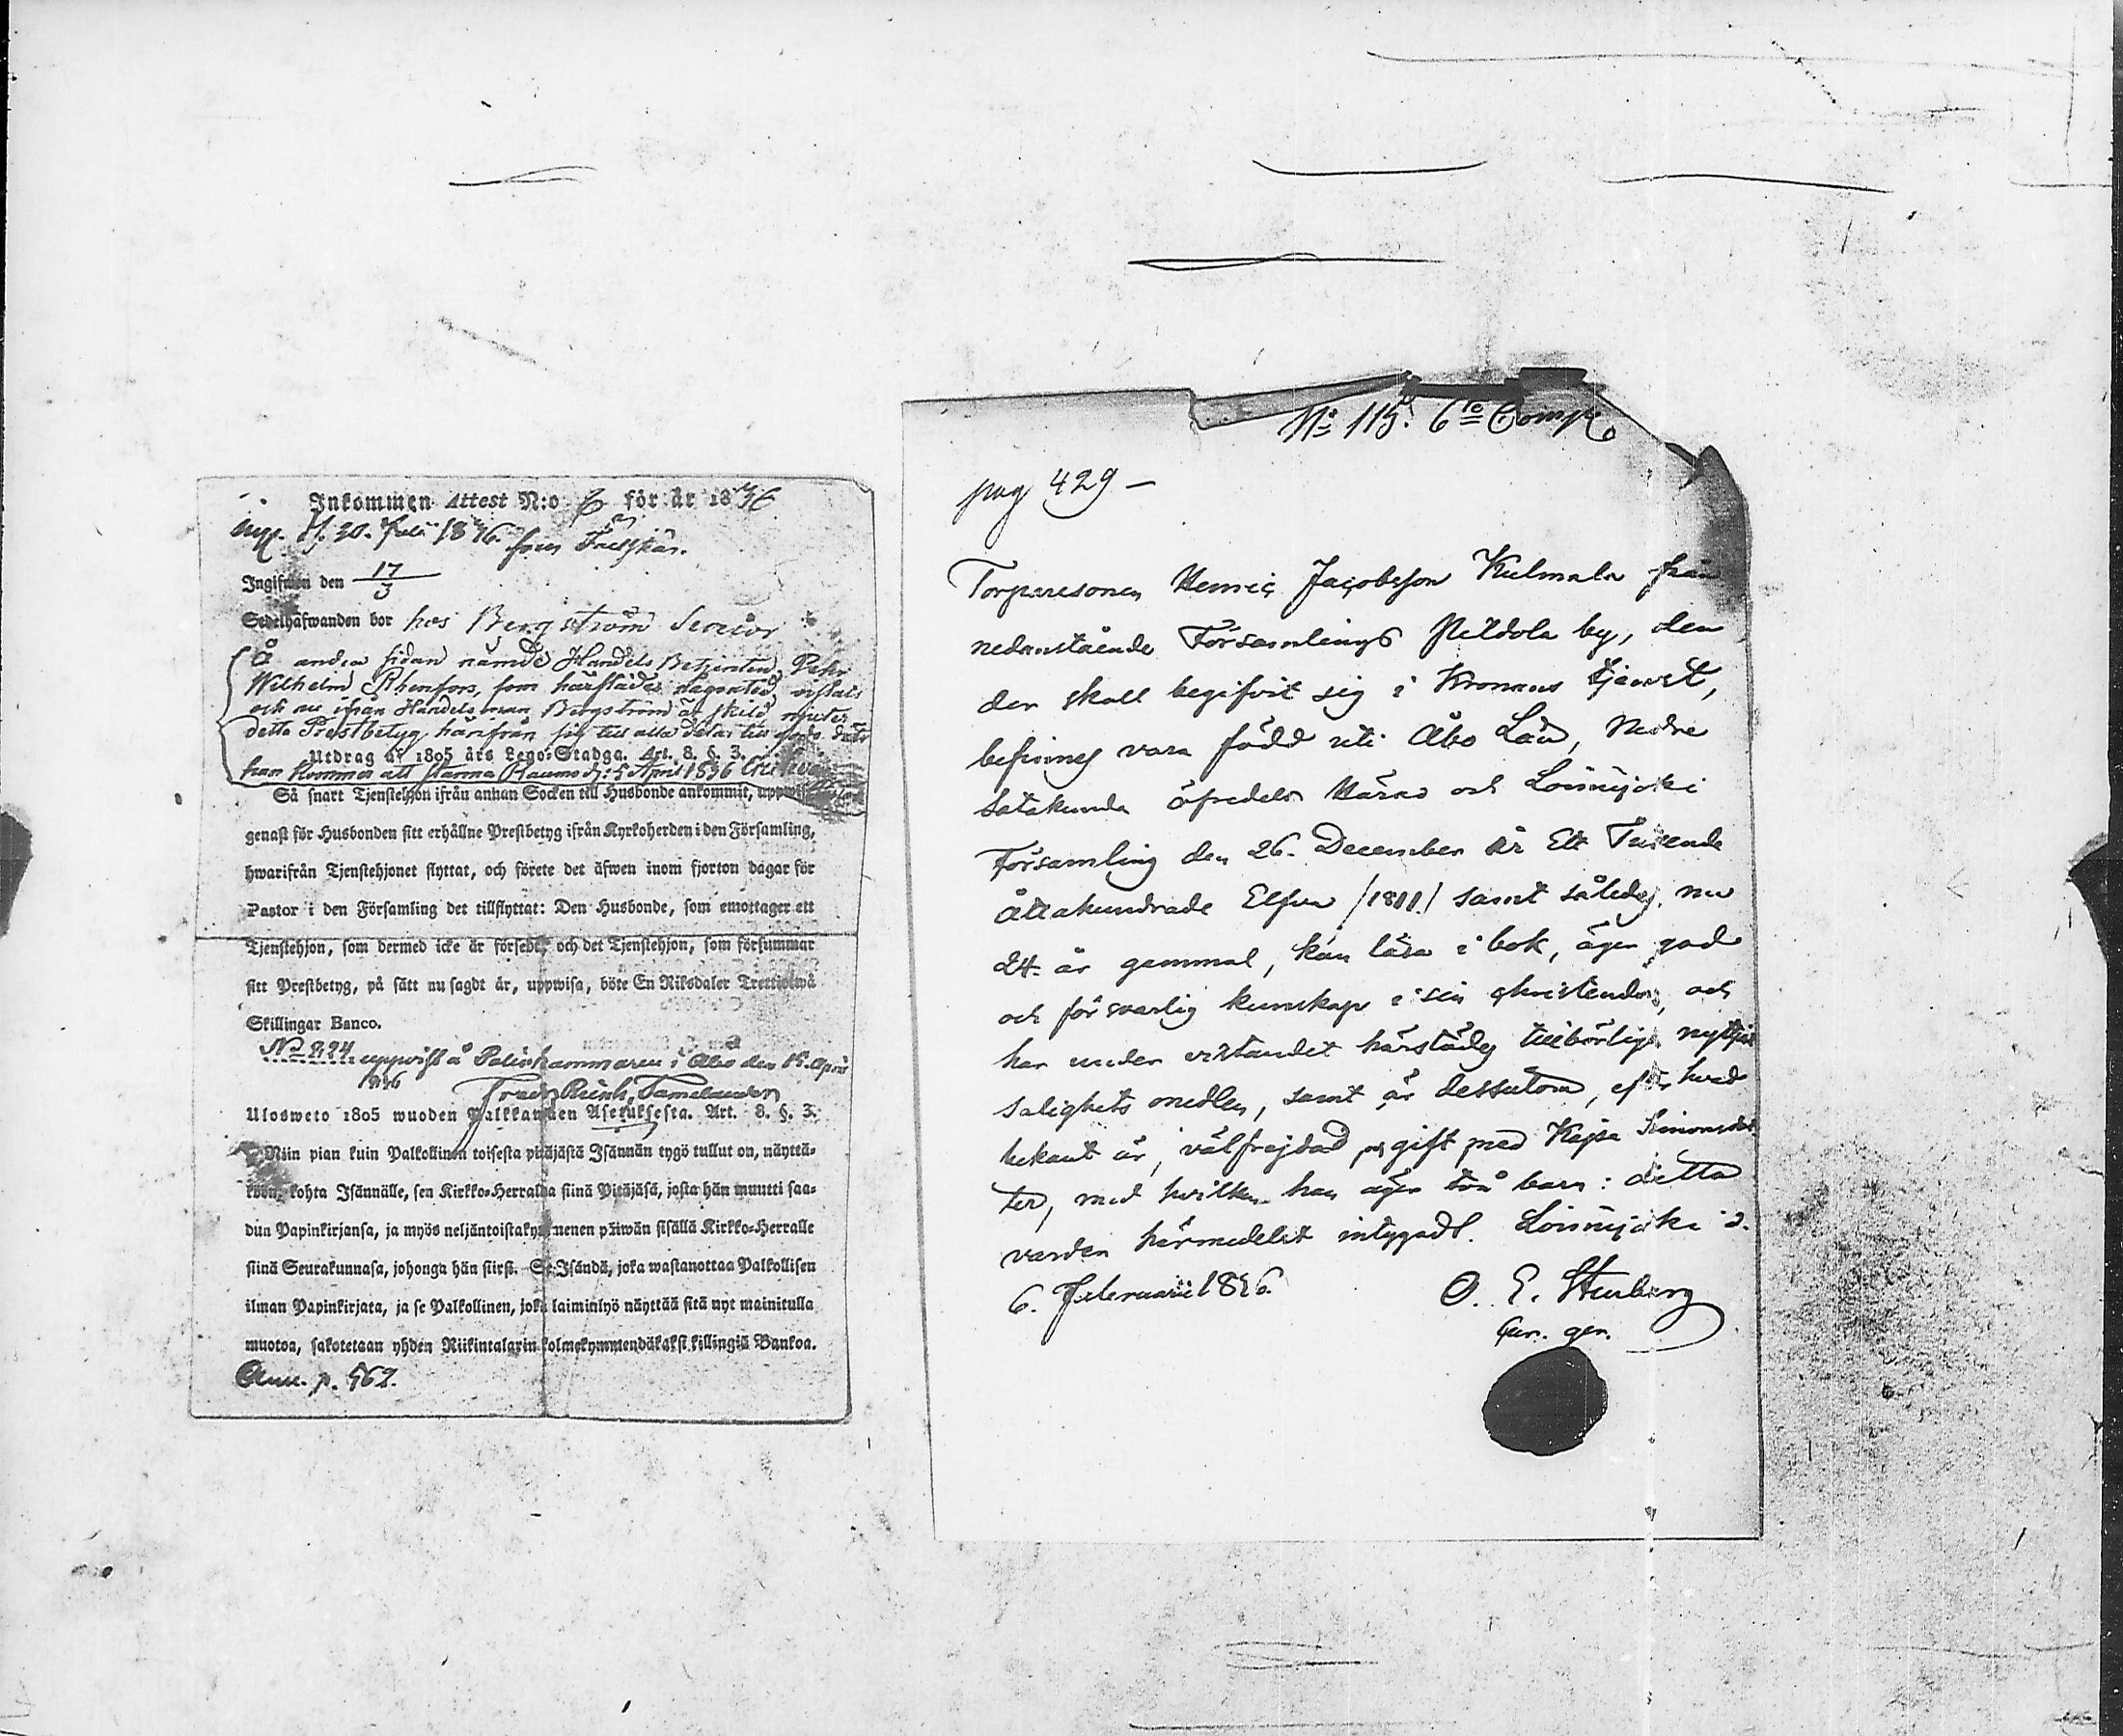 Inkommen Attest N:o 6 för år 1836
Ingifwen den 17/3
Sedelhäfwanden bor hos Bergström Senior
Å andra sidan nämde Handels Betjenten Petter
Wilhelm Rhenfors, som härstädes någontid vistats
och nu ifrån Handelsman Bergström är skild njuter
detta Prestbetyg härifrån sig till alla delar till godo
Utdrag af 1805 års Lego-Stadga. Art. 8. §. 3.
han kommer att stanna Raumo d: 5 April 1836
Så snart Tjenstehjon ifrån annan Socken till Husbonde ankommit, uppwise
genast för Husbonden sitt erhållne Prestbetyg ifrån Kyrkoherden i den Församling,
hwarifrån Tjenstehjonet flyttat, och förete det äfwen inom fjorton dagar för
Pastor i den Församling det tillflyttat: Den Husbonde, som emottager ett
Tjenstehjon, som dermed icke är försedt, och det Tjenstehjon, som försummar
sitt Prestbetyg, på sätt nu sagdt är, uppwisa, böte En Riksdaler Trettiotwå
Skillingar Banco.
No 224 uppvist å Poliskammaren i Åbo den 15 April
1836
Ulosweto 1805 wuoden Palkkawäen Asetuksesta. Art. 8. §. 3.
Niin pian kuin Palkollinen toisesta pitäjästä Isännän tygö tullut on, näyttä-
köön kohta Isännälle, sen Kirkko-Herralda siinä Pitäjäsä, josta hän muutti saa-
dun Papinkirjansa, ja myös neljäntoistakymmenen päiwän sisällä Kirkko-Herralle
siinä Seurakunnasa, johonga hän siirsi. Se Isändä, joka wastanottaa Palkollisen
ilman Papinkirjata, ja se Palkollinen, joka laiminlyö näyttää sitä nyt mainitulla
muotoa, sakotetaan yhden Riikintalarin kolmekymmendäkaksi killingiä Bankoa.
Ann. p. 562.
No 115. 6te Comp.
pag 429 –
Torparesonen Henric Jacobsson Kulmala från
nedanstående Församlings Peldola by, den
der skall begifvit sig i Kronans tjenst,
befinnes vara född uti Åbo Län, Nedre
Satakunda öfredels Härad och Loimijoki
Församling den 26. December År Ett Tusende
Åttahundrade Elfva /1811/ samt således nu
24. år gammal, kan läsa i bok, äger god
och försvarlig kunskap i sin christendom, och
har under vistandet härstädes tillbörligen nyttjat
salighets medlen, samt är dessutom, efter hvad
bekant är, välfrejdad och gift med Kajsa Simonsdot
ter, med hvilken han äger två barn: detta
varder härmedelst intygadt. Loimijoki d.
6. Februarii 1836.
O. E. Stenberg